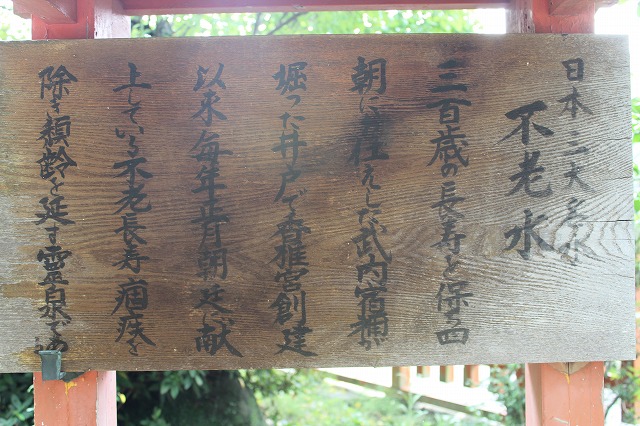 日本三大名水
不老水
三百歳の長寿を保ち四
朝に仕えした武内宿祢が
堀った井戸で香椎宮創建
以来毎年昔朝廷に献
上している不老長寿痼疾を
除き頽齢を延す霊泉であ